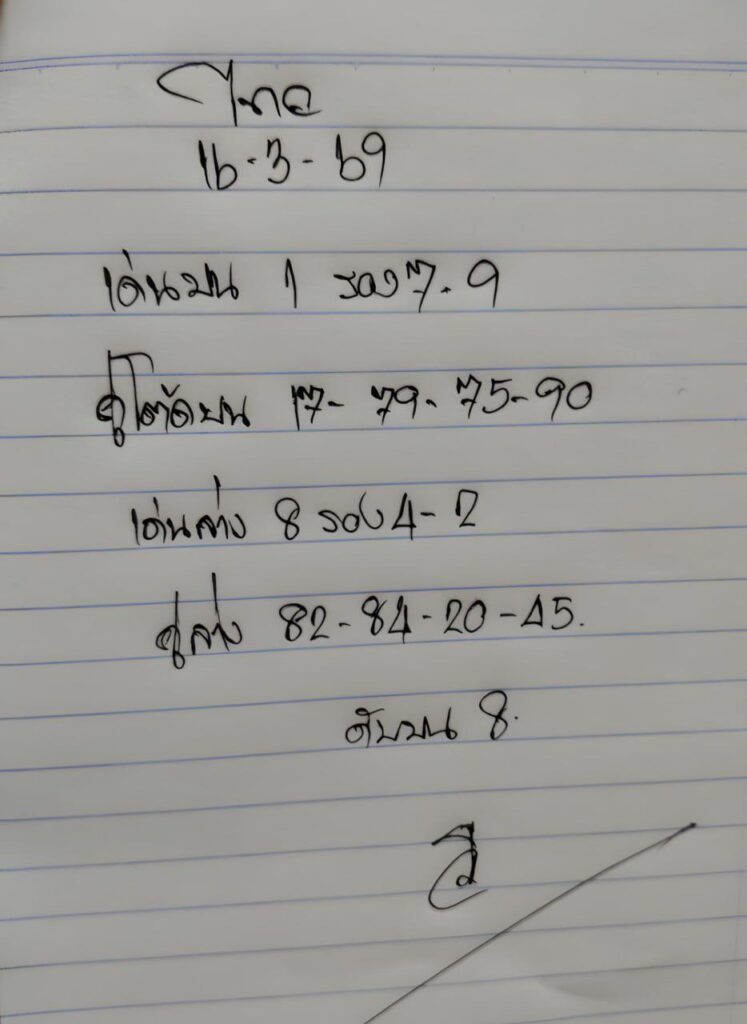 ไทย
16-3-69
เด่นบน 1 รอง 7-9
คู่โต๊ดบน 17-79-75-90
เด่นล่าง 8 รอง 4-2
คู่ล่าง 82-84-20-45.
ดับบน 8.